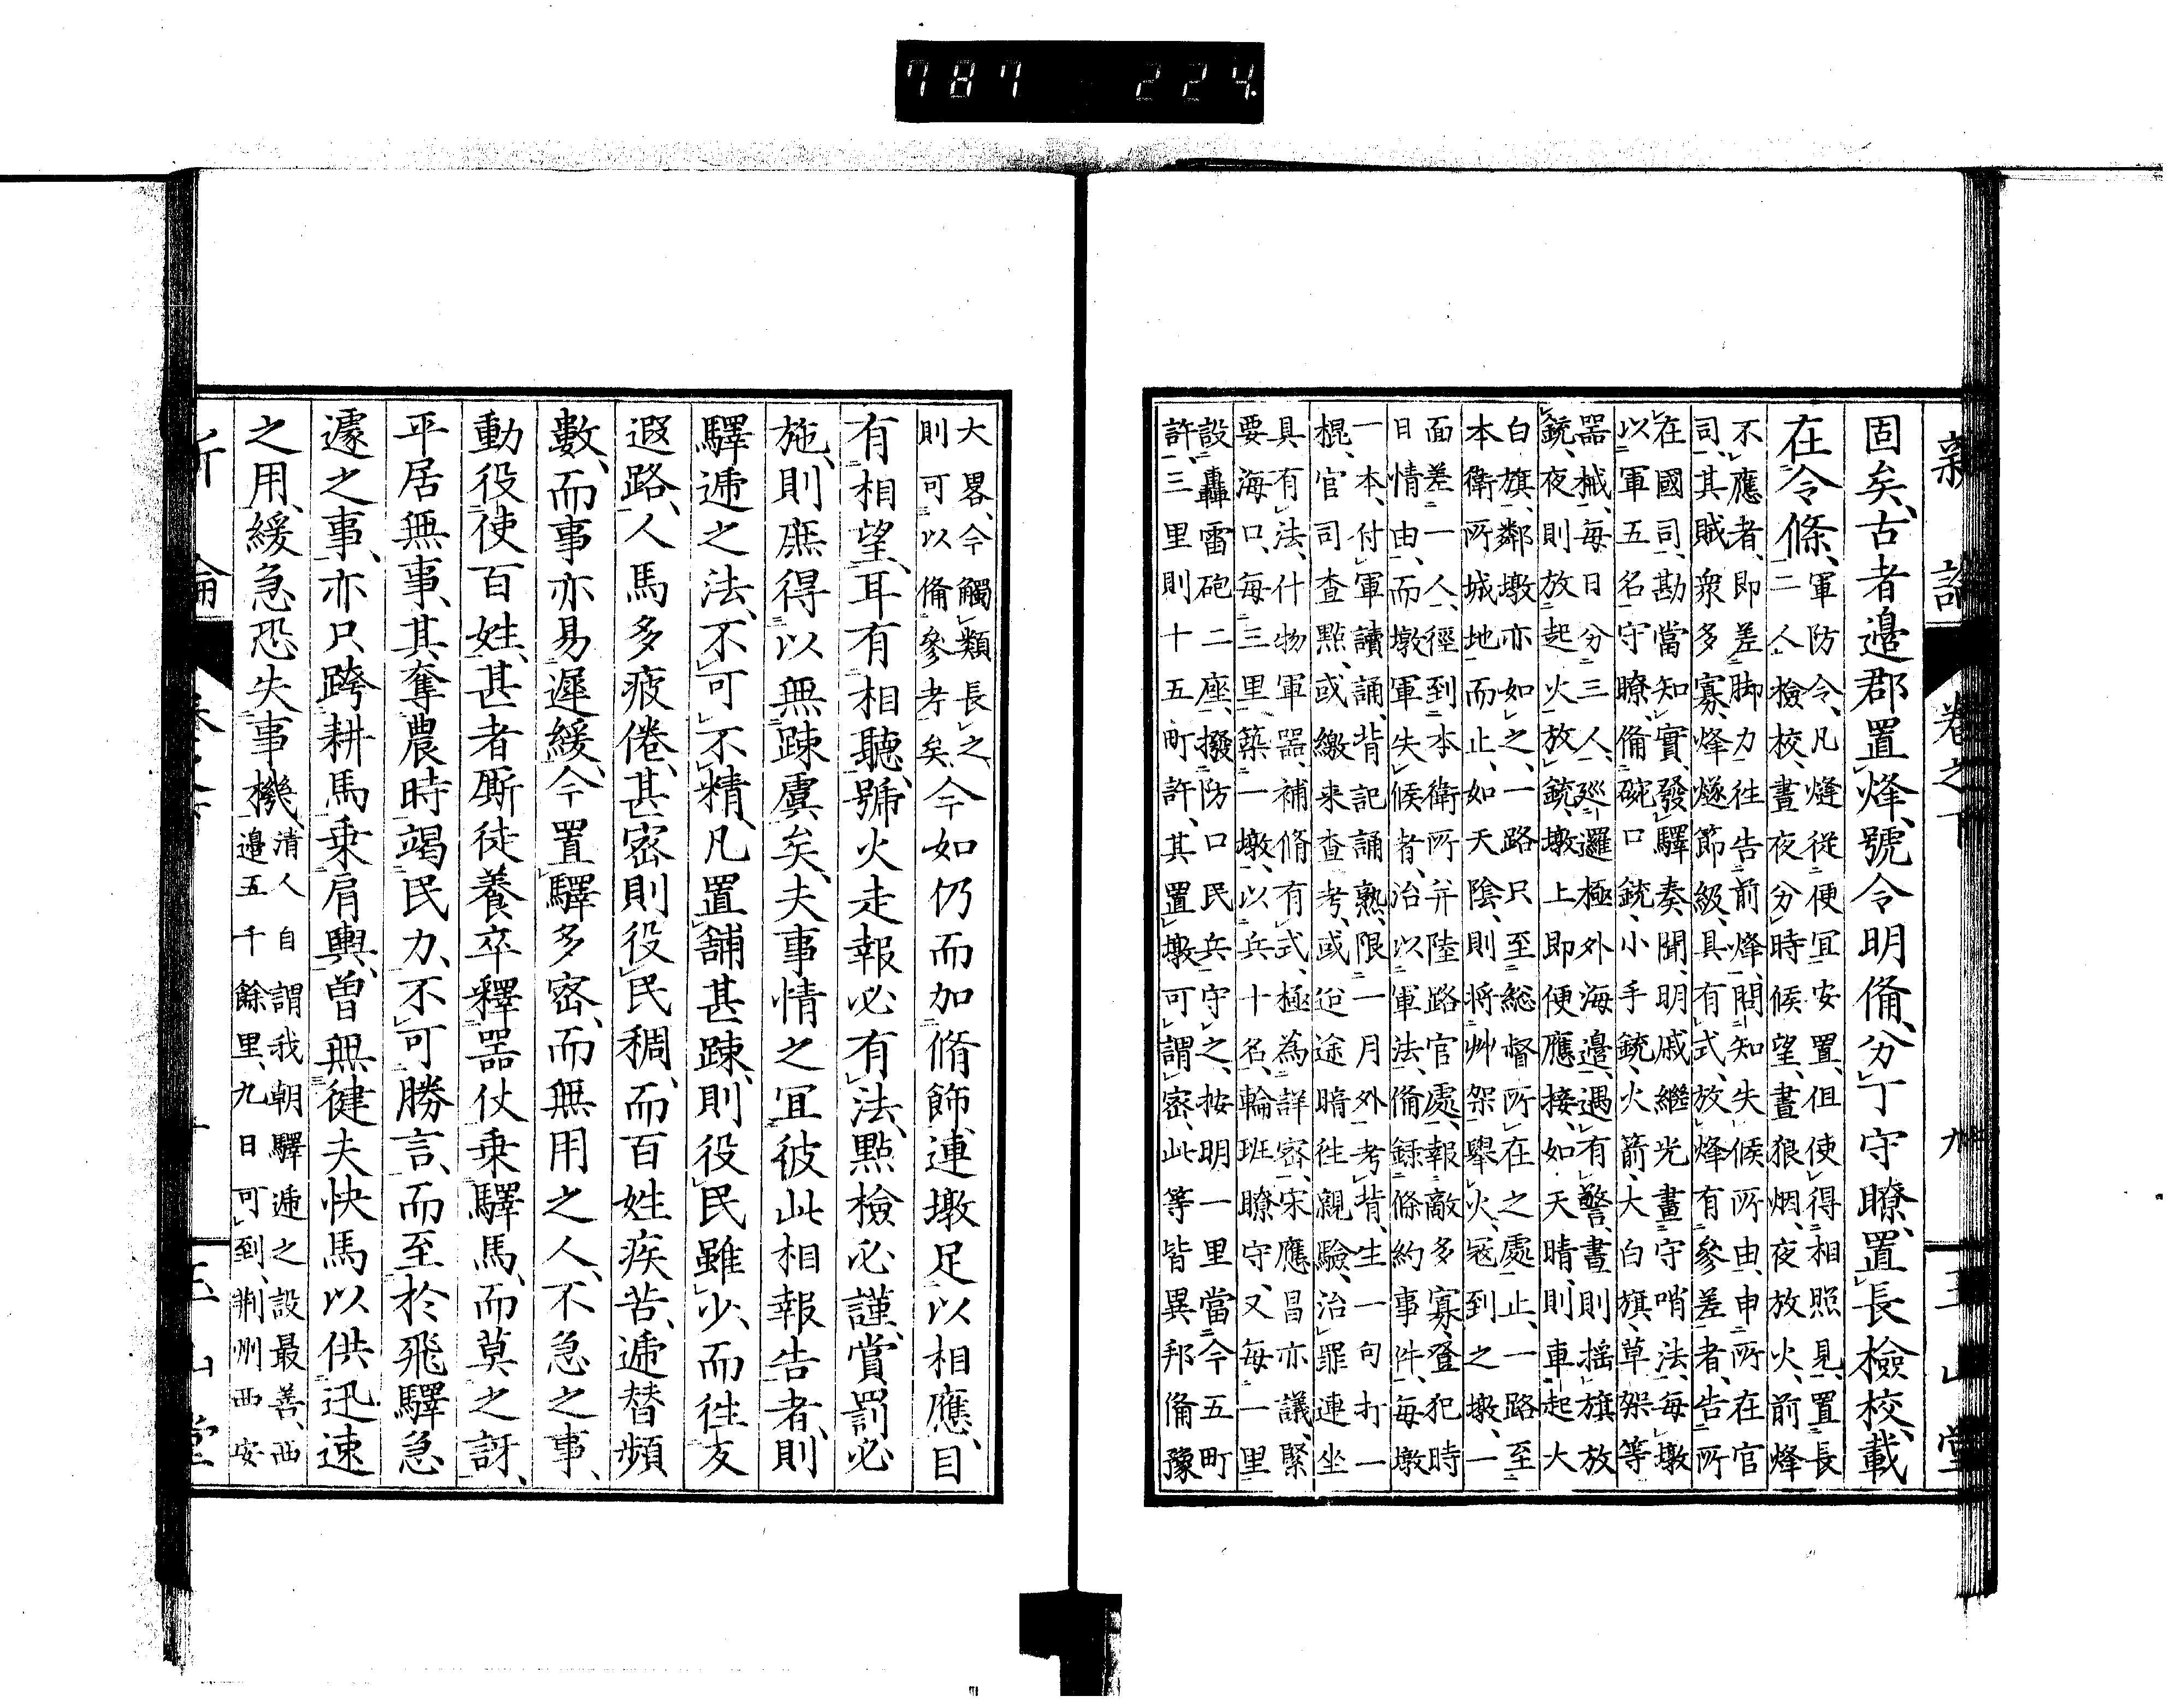 787 224
新論 卷之下 九 玉山堂
固矣、古者邊郡置烽、號令明備、分丁守瞭、置長檢校、載
在令條、
軍防令、凡烽從便宜安置、但使得相照見、置長
二人檢校、晝夜分時候望、晝狼烟、夜放火、前烽
不應者、即差脚力往告前烽、問知失候所由、申所在官
司、其賊衆多寡、烽燧節級、具有式、放烽有參差者、告所
在國司、勘當知實、發驛奏聞、明戚繼光畫守哨法、每墩
以軍五名守瞭、備碗口銃、小手銃、火箭、大白旗、草架等
器械、每日分三人、巡邏極外海邊、遇有警、晝則搖旗放
銃、夜則放起火放銃、墩上即便應接、如天晴、則車起大
白旗、鄰墩亦如之、一路只至総督所在之處止、一路至
本衛所城地而止、如天陰、則將艸架舉火、冦到之墩、一
面差一人、徑到本衛所并陸路官處、報敵多寡、登犯時
日情由、而墩軍失候者、治以軍法、備錄條約事件、每墩
一本、付軍讀誦、背記誦熟、限一月外考、背生一句打一
棍、官司查點、或繳来查考、或迯途暗往親驗、治罪連坐
具有法、什物軍器、補脩有式、極為詳密、宋應昌亦議、緊
要海口、每三里、築一墩、以兵十名、輪班瞭守、又每一里
設轟雷砲二座、撥防口民兵守之、按明一里當今五町
許、三里則十五町許、其置墩可謂密、此等皆異邦備豫
大畧、今觸類長之、
則可以備參考矣、
今如仍而加脩飾、連墩足以相應、目
有相望、耳有相聽、號火走報必有法、點檢必謹、賞罰必
施、則庶得以無踈虞矣、夫事情之冝彼此相報告者、則
驛逓之法、不可不精、凡置舗甚踈、則役民雖少、而往攴
遐路、人馬多疲倦、甚密則役民稠、而百姓疾苦、逓替頻
數、而事亦易遲緩、今置驛多密、而無用之人、不急之事、
動役使百姓、甚者厮徒養卒、釋器仗乗驛馬、而莫之訝、
平居無事、其奪農時、竭民力、不可勝言、而至於飛驛急
遽之事、亦只跨耕馬乗肩輿、曽無健夫快馬以供迅速
之用、緩急恐失事機、
清人自謂我朝驛逓之設最善、西
邊五千餘里、九日可到、荆州西安